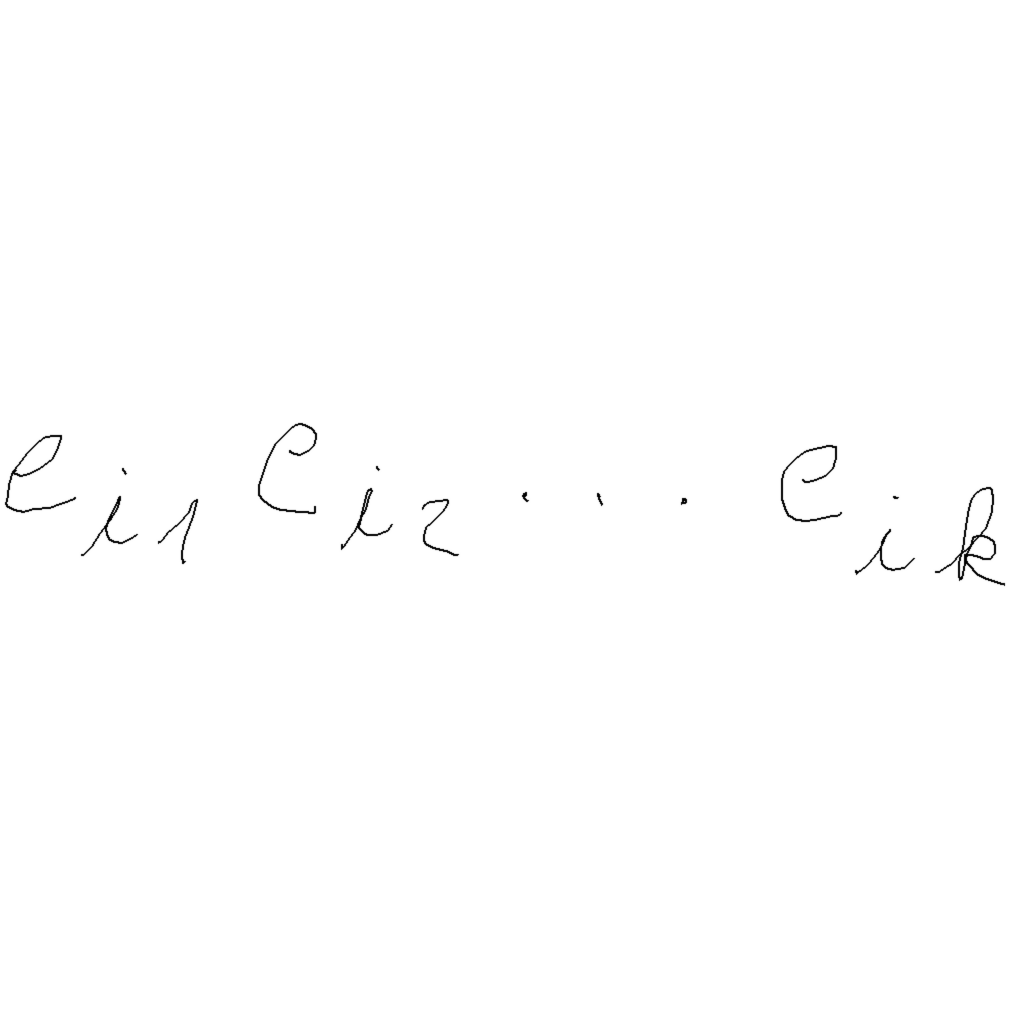 e_{i_1} e_{i_2} \cdots e_{i_k}